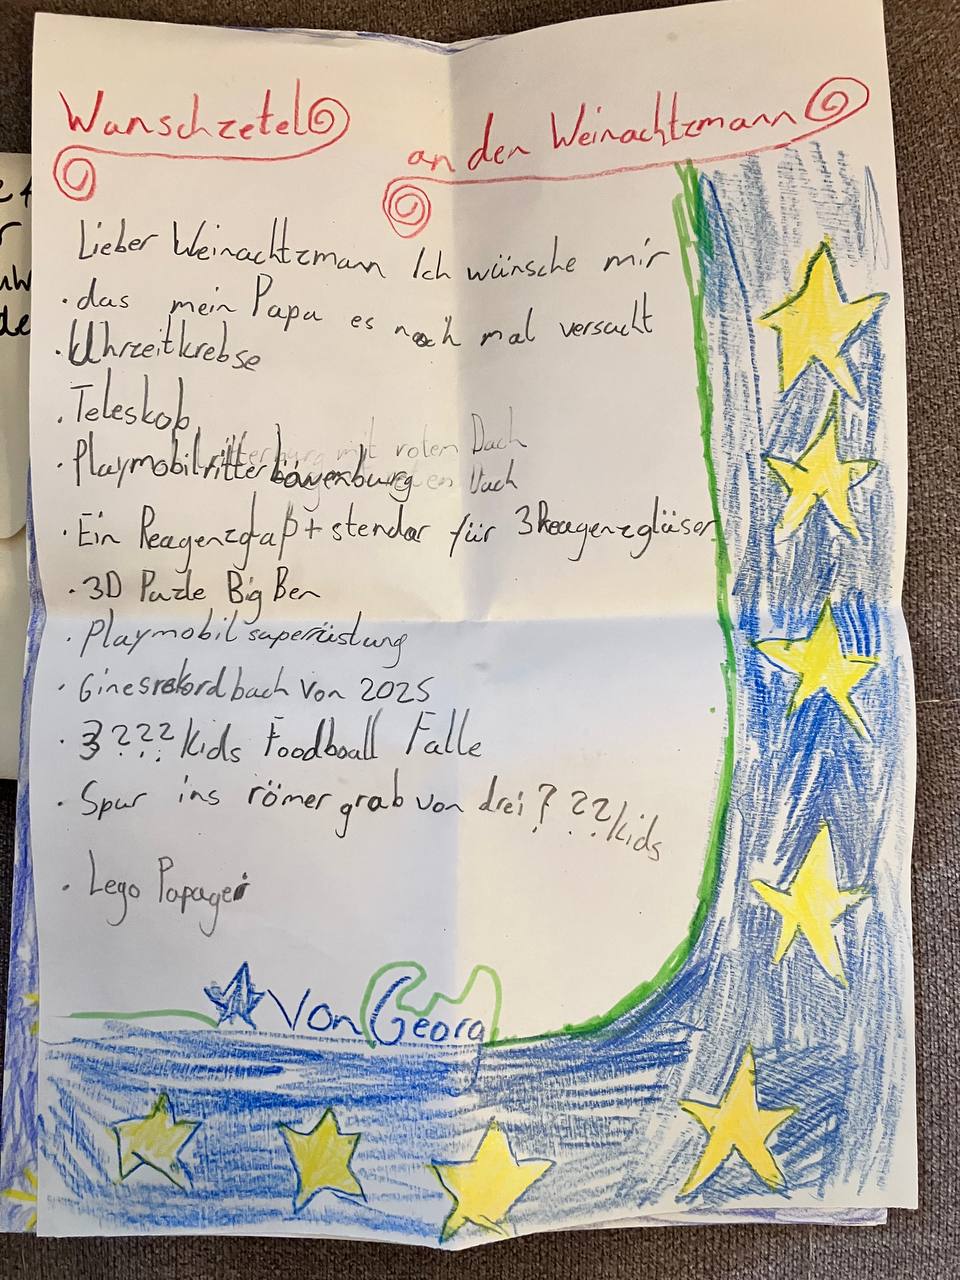 Wunschzetel
an den Weinachtzmann
Lieber Weinachtzmann Ich wünsche mir
· das mein Papa es noch mal versucht
· Uhrzeitkrebse
· Teleskob
mit roten Dach
· Playmobilritter löwenburg Dach
· Ein Reagenzglaß + stendar für 3 Reagenzgläser
· 3D Puzle Big Ben
· Playmobil superrüstung
· Ginesrekordbach von 2025
· 3 ??? Kids Foodboall Falle
· Spur ins römer grab von drei ? ?? Kids
· Lego Papagei
Von Georg